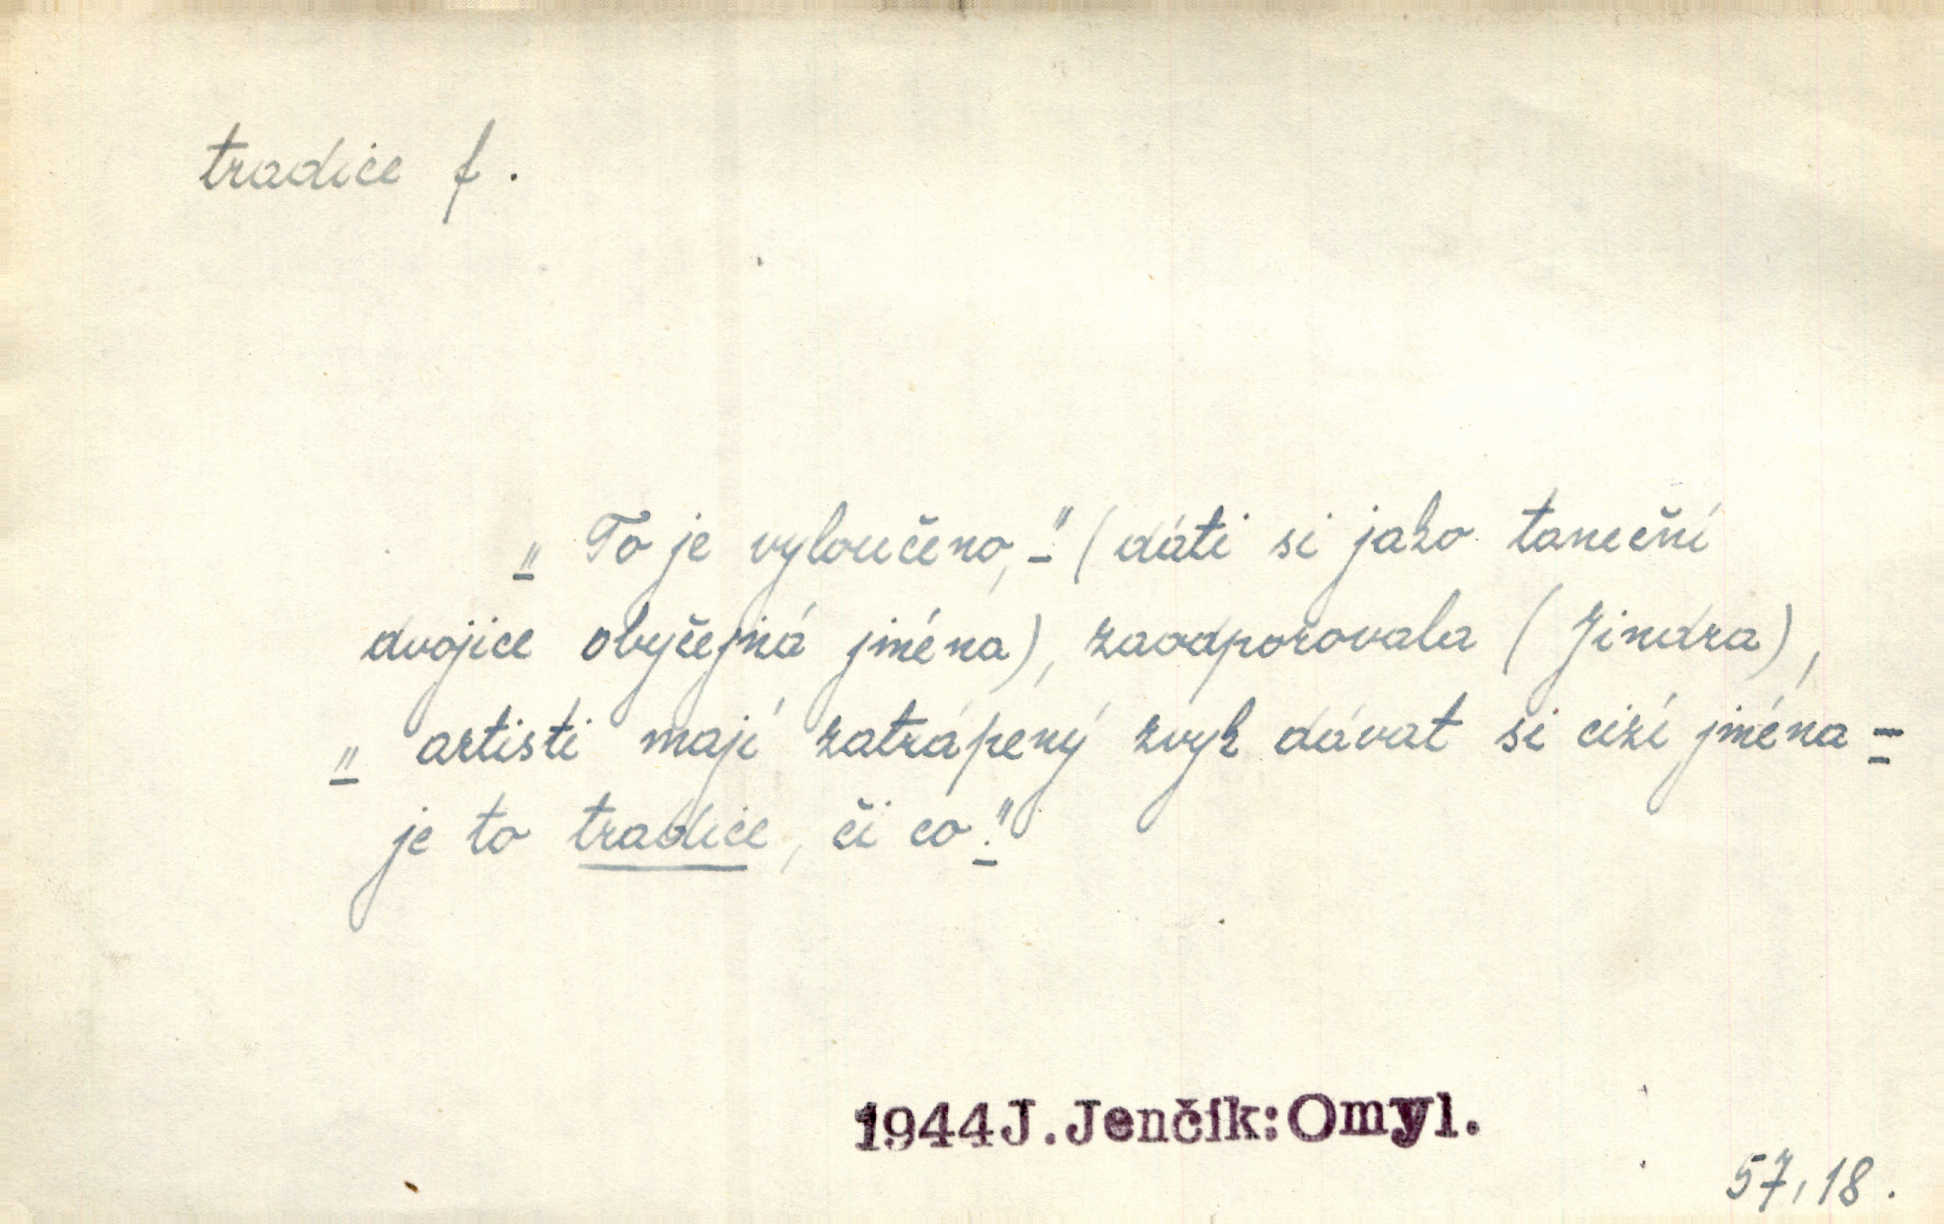 tradice f.
„To je vyloučeno,-" (dáti si jako taneční
dvojice obyčejná jména), zaodporovala (Jindra),
„artisti mají zatrápený zvyk dávat si cizí jména =
je to tradice, či co."
1944 J. Jenčík: Omyl.
57, 18.